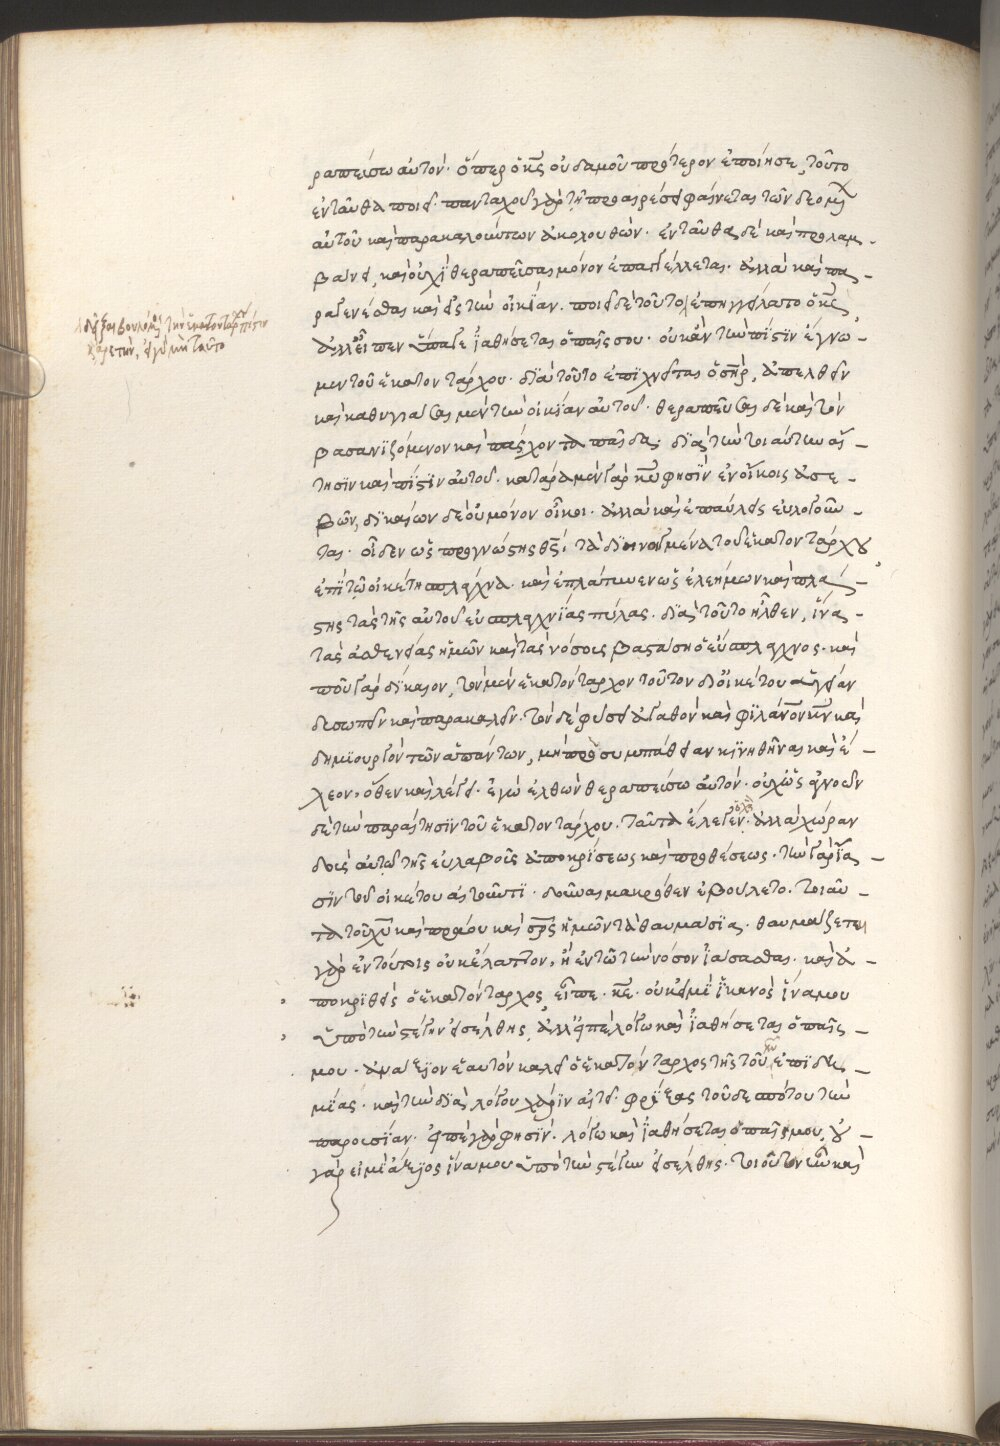 ραπεύσω αὐτόν. ὅπερ ὁ κς οὐδαμοῦ πρότερον ἐποίησε, τοῦτο
ἐνταῦθα ποιεῖ. πανταχοῦ γὰρ τῇ προαιρέσει φαίνεται τῶν δεομέ
αὐτοῦ καὶ παρακαλούντων ἀκολουθῶν. ἐνταῦθα δὲ καὶ προλαμ-
βάνει, καὶ οὐχὶ θεραπεῦσαι μόνον ἐπαγγέλλεται. ἀλλὰ καὶ πα-
ραγενέσθαι καὶ εἰς τὴν οἰκίαν. ποιεῖ δὲ τοῦτο
ἀλλ' εἶπεν ὕπαγε ἰαθήσεται ὁ παῖς σου. οὐκ ἂν τὴν πίστιν ἔγνω-
μεν τοῦ ἑκατοντάρχου. διὰ τοῦτο ἐπιχνεῖται ὁ σηρ, ἀπελθεῖν
καὶ καθυγιάσαι μὲν τὴν οἰκίαν αὐτοῦ. θεραπεῦσαι δὲ καὶ τὸν
βασανιζόμενον καὶ πάσχοντα παῖδα. διὰ τὴν τοιαύτην αἴ-
τησιν καὶ πίστιν αὐτοῦ. κατάρα μὲν γὰρ κυ φησὶν ἐν οἴκοις ἀσε-
βῶν, δικαίων δὲ οὐ μόνον οἶκοι. ἀλλὰ καὶ ἐπαύλεις εὐλογοῦν-
ται. οἶδεν ὡς προγνώστης θς, τὰ διανοούμενα τοῦ ἑκατοντάρχου
ἐπὶ τῷ οἰκέτῃ σπλάχνα. καὶ ἐπλάτυνεν ὡς ἐλεήμων καὶ πλά-
στης τὰς τῆς αὐτοῦ εὐσπλαχνίας πύλας. διὰ τοῦτο ἦλθεν, ἵνα-
τὰς ἀσθενείας ἡμῶν καὶ τὰς νόσους βαστάσῃ ὁ εὔσπλαχνος. καὶ
ποῦ γὰρ δίκαιον, τὸν μὲν ἑκατόνταρχον τοῦτον διοικέτου ὑγείαν
δυσωπεῖν καὶ παρακαλεῖν. τὸν δὲ φύσει ἀγαθὸν καὶ φιλάνον κν καὶ
δημιουργὸν τῶν ἁπάντων, μὴ πρὸ συμπάθειαν κινηθῆναι καὶ ἔ-
λεον. ὅθεν καὶ λέγει. ἐγὼ ἐλθὼν θεραπεύσω αὐτόν. οὐχ ὡς ἀγνοῶν
δὲ τὴν παραίτησιν τοῦ ἑκατοντάρχου. ταῦτα ἔλεγεν. ἀλλὰ χώραν
δοὺς αὐτῷ τῆς εὐλαβοῦς ἀποκρίσεως καὶ προθέσεως. τὴν γὰρ ἴα-
σιν τοῦ οἰκέτου αἰτοῦντι. δοῦναι μακρόθεν ἐβούλετο. τοιαῦ-
τα τοῦ χυ καὶ πράου καὶ σρς ἡμῶν τὰ θαυμάσια. θαυμάζεται
γὰρ ἐν τούτοις οὐκ ἔλαττον, ἢ ἐν τῷ τὴν νόσον ἰάσασθαι. καὶ ἀ-
ποκριθεὶς ὁ ἑκατόνταρχος, εἶπε. κε. οὐκ εἰμὶ ἱκανὸς ἵνα μου
ὑπὸ τὴν στέγην εἰσέλθῃς, ἀλλ' εἰπὲ λόγῳ καὶ ἰαθήσεται ὁ παῖς-
μου. ἀνάξιον ἑαυτὸν καλεῖ ὁ ἑκατόνταρχος τῆς τοῦ κυ ἐπιδη-
μίας. καὶ τὴν διὰ λόγου χάριν αἰτεῖ. φρίξας τοῦ δεσπότου τὴν
παρουσίαν. εἰπὲ γὰρ φησίν. λόγῳ καὶ ἰαθήσεται ὁ παῖς μου, οὐ-
γάρ εἰμι ἄξιος ἵνα μου ὑπὸ τὴν στέγην εἰσέλθῃς. τοιοῦτον οὖν καὶ